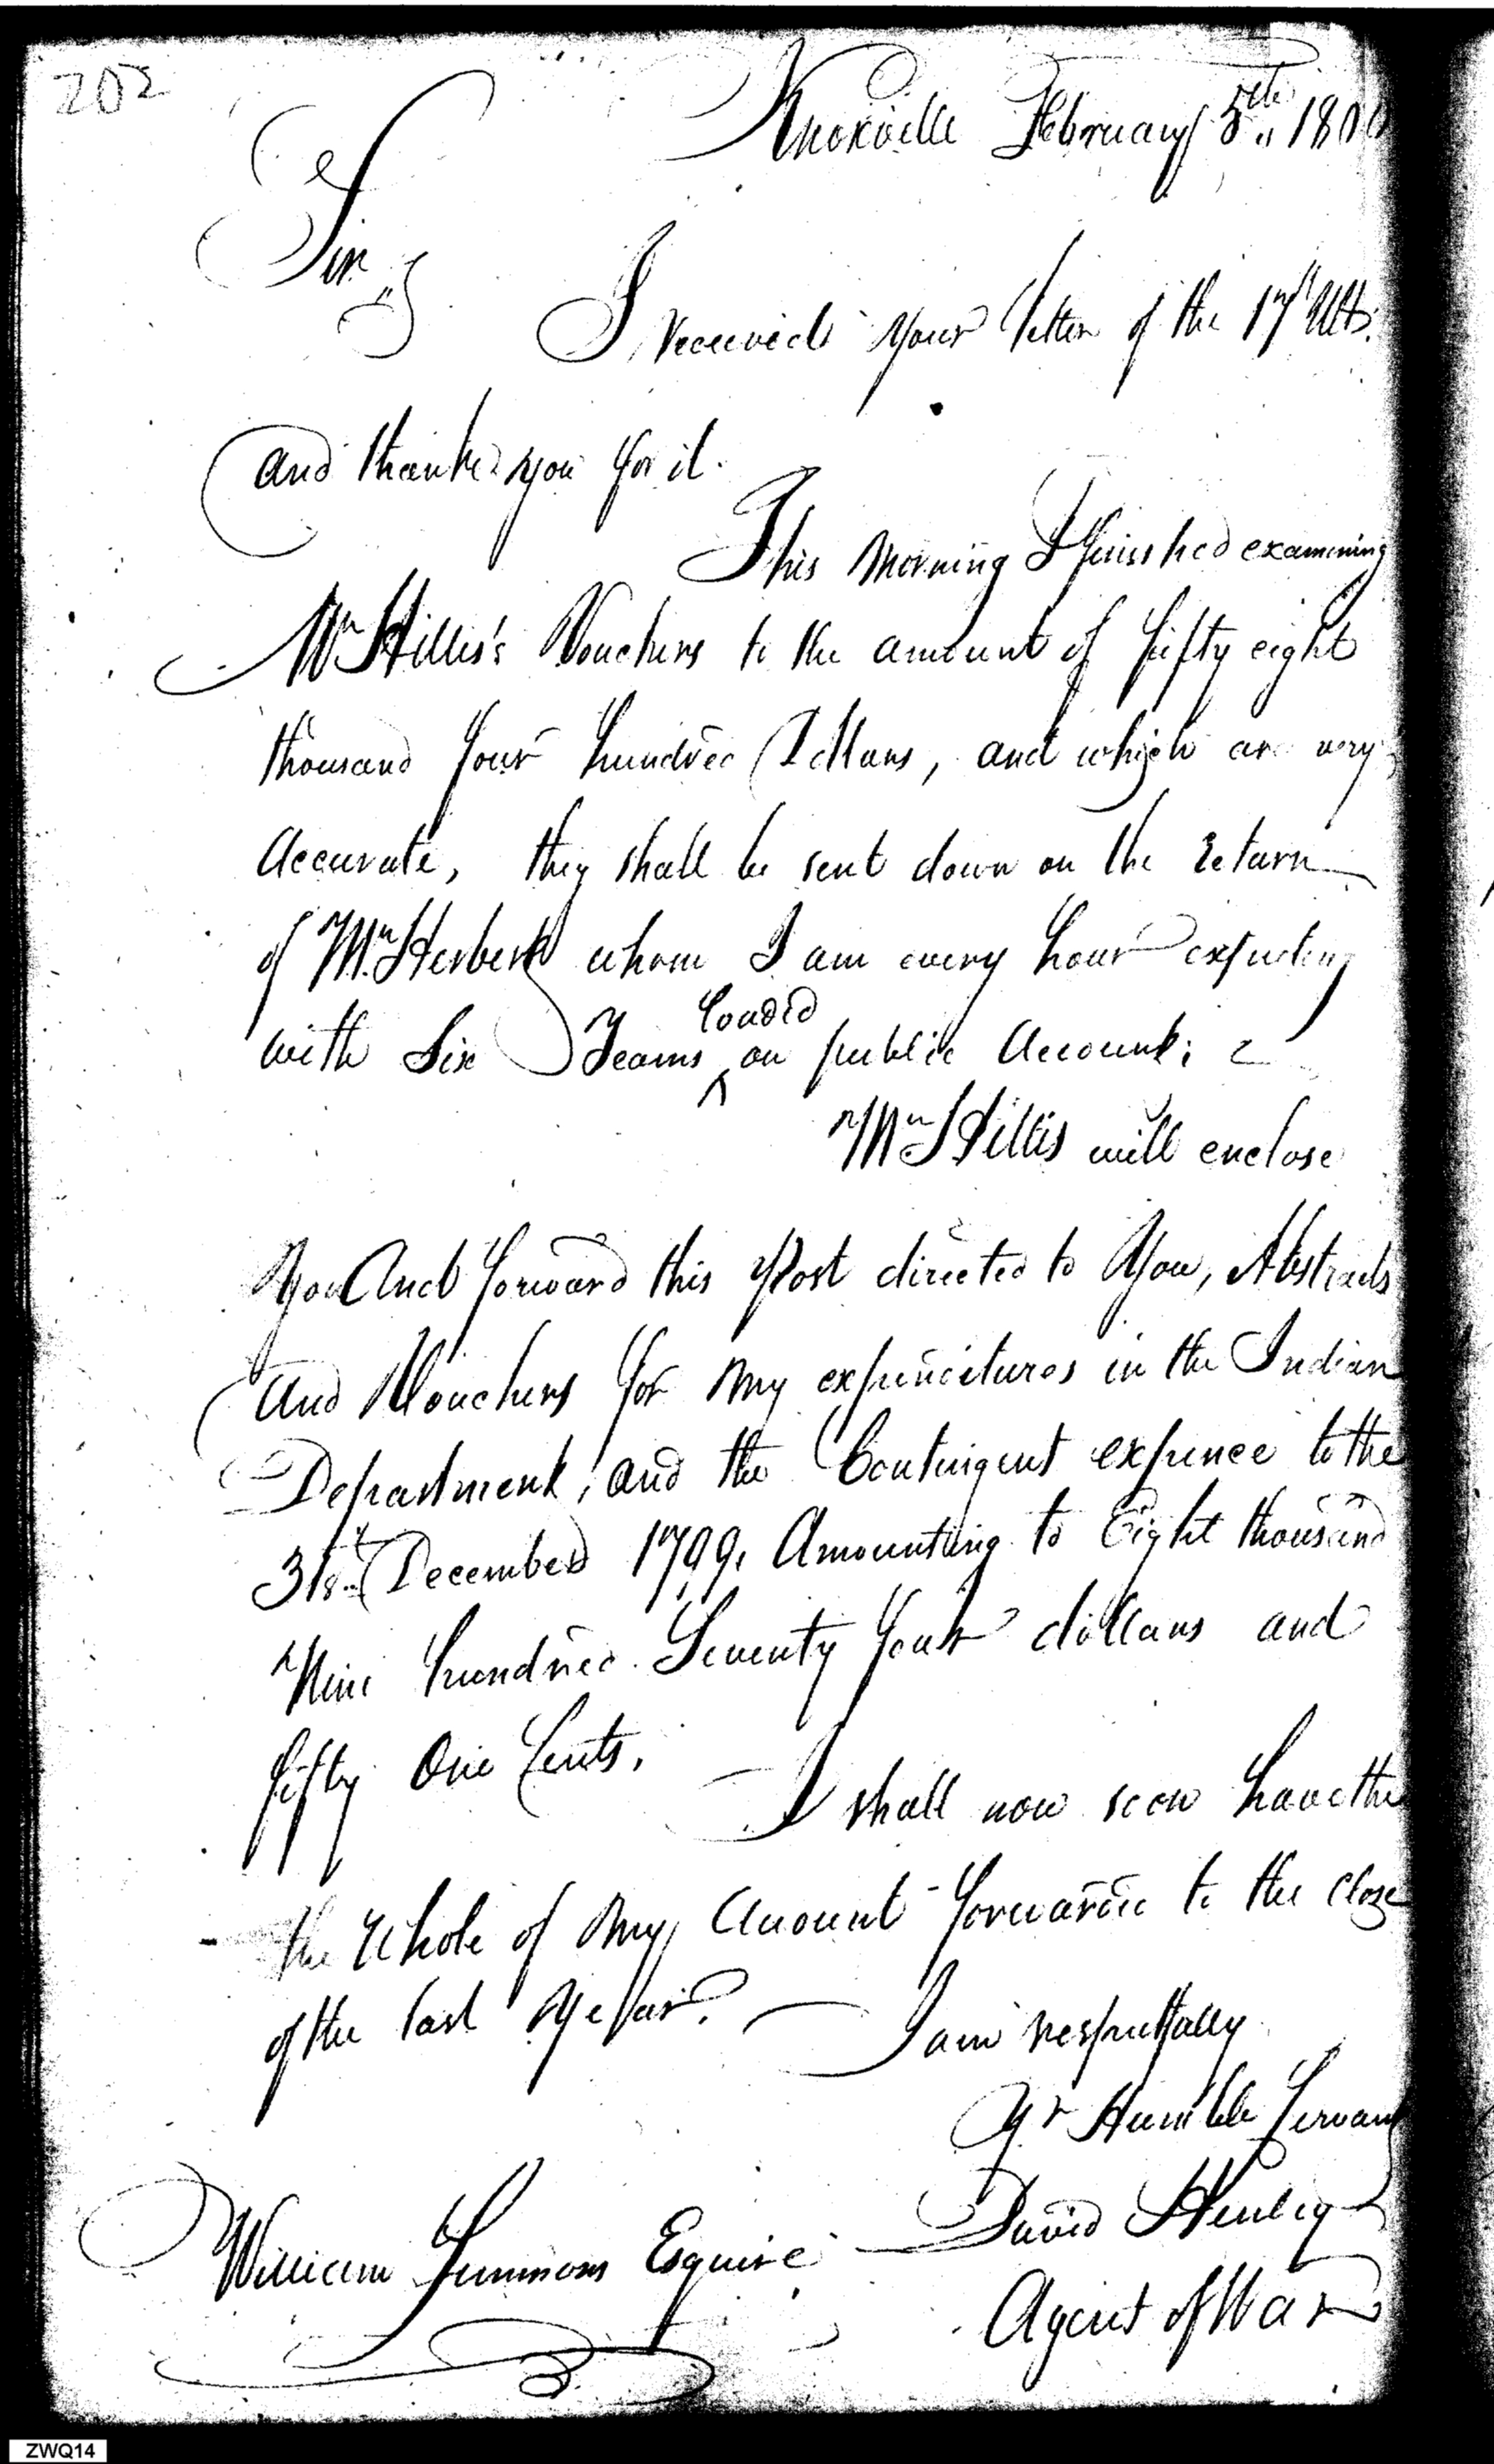 202
Knoxville February 5th 1800
Sir,
I received your letter of the 17th Ulto.
and thanke you for it.
This Morning I finished examining
Mr Hillis's Vouchers to the amount of fifty eight
thousand four hundred Dollars, and which are very
Accurate, they shall be sent down on the return
of Mr Herbert whom I am every hour expecting
with Six Teams ^ loaded on public Account;
Mr Hillis will enclose
You And forward this Post directed to You, Abstracts
And Vouchers for my expenditures in the Indian
Department, and the Contingent expence to the
31st December 1799, Amounting to Eight thousand
Nine hundred Seventy four dollars and
fifty One Cents.
I shall now soon have the
the Whole of my Account forwarded to the close
of the last Year.
I am respectfully
Yr Humble Servant
David Henley
William Simmons Esquire
Agent of War
ZWQ14